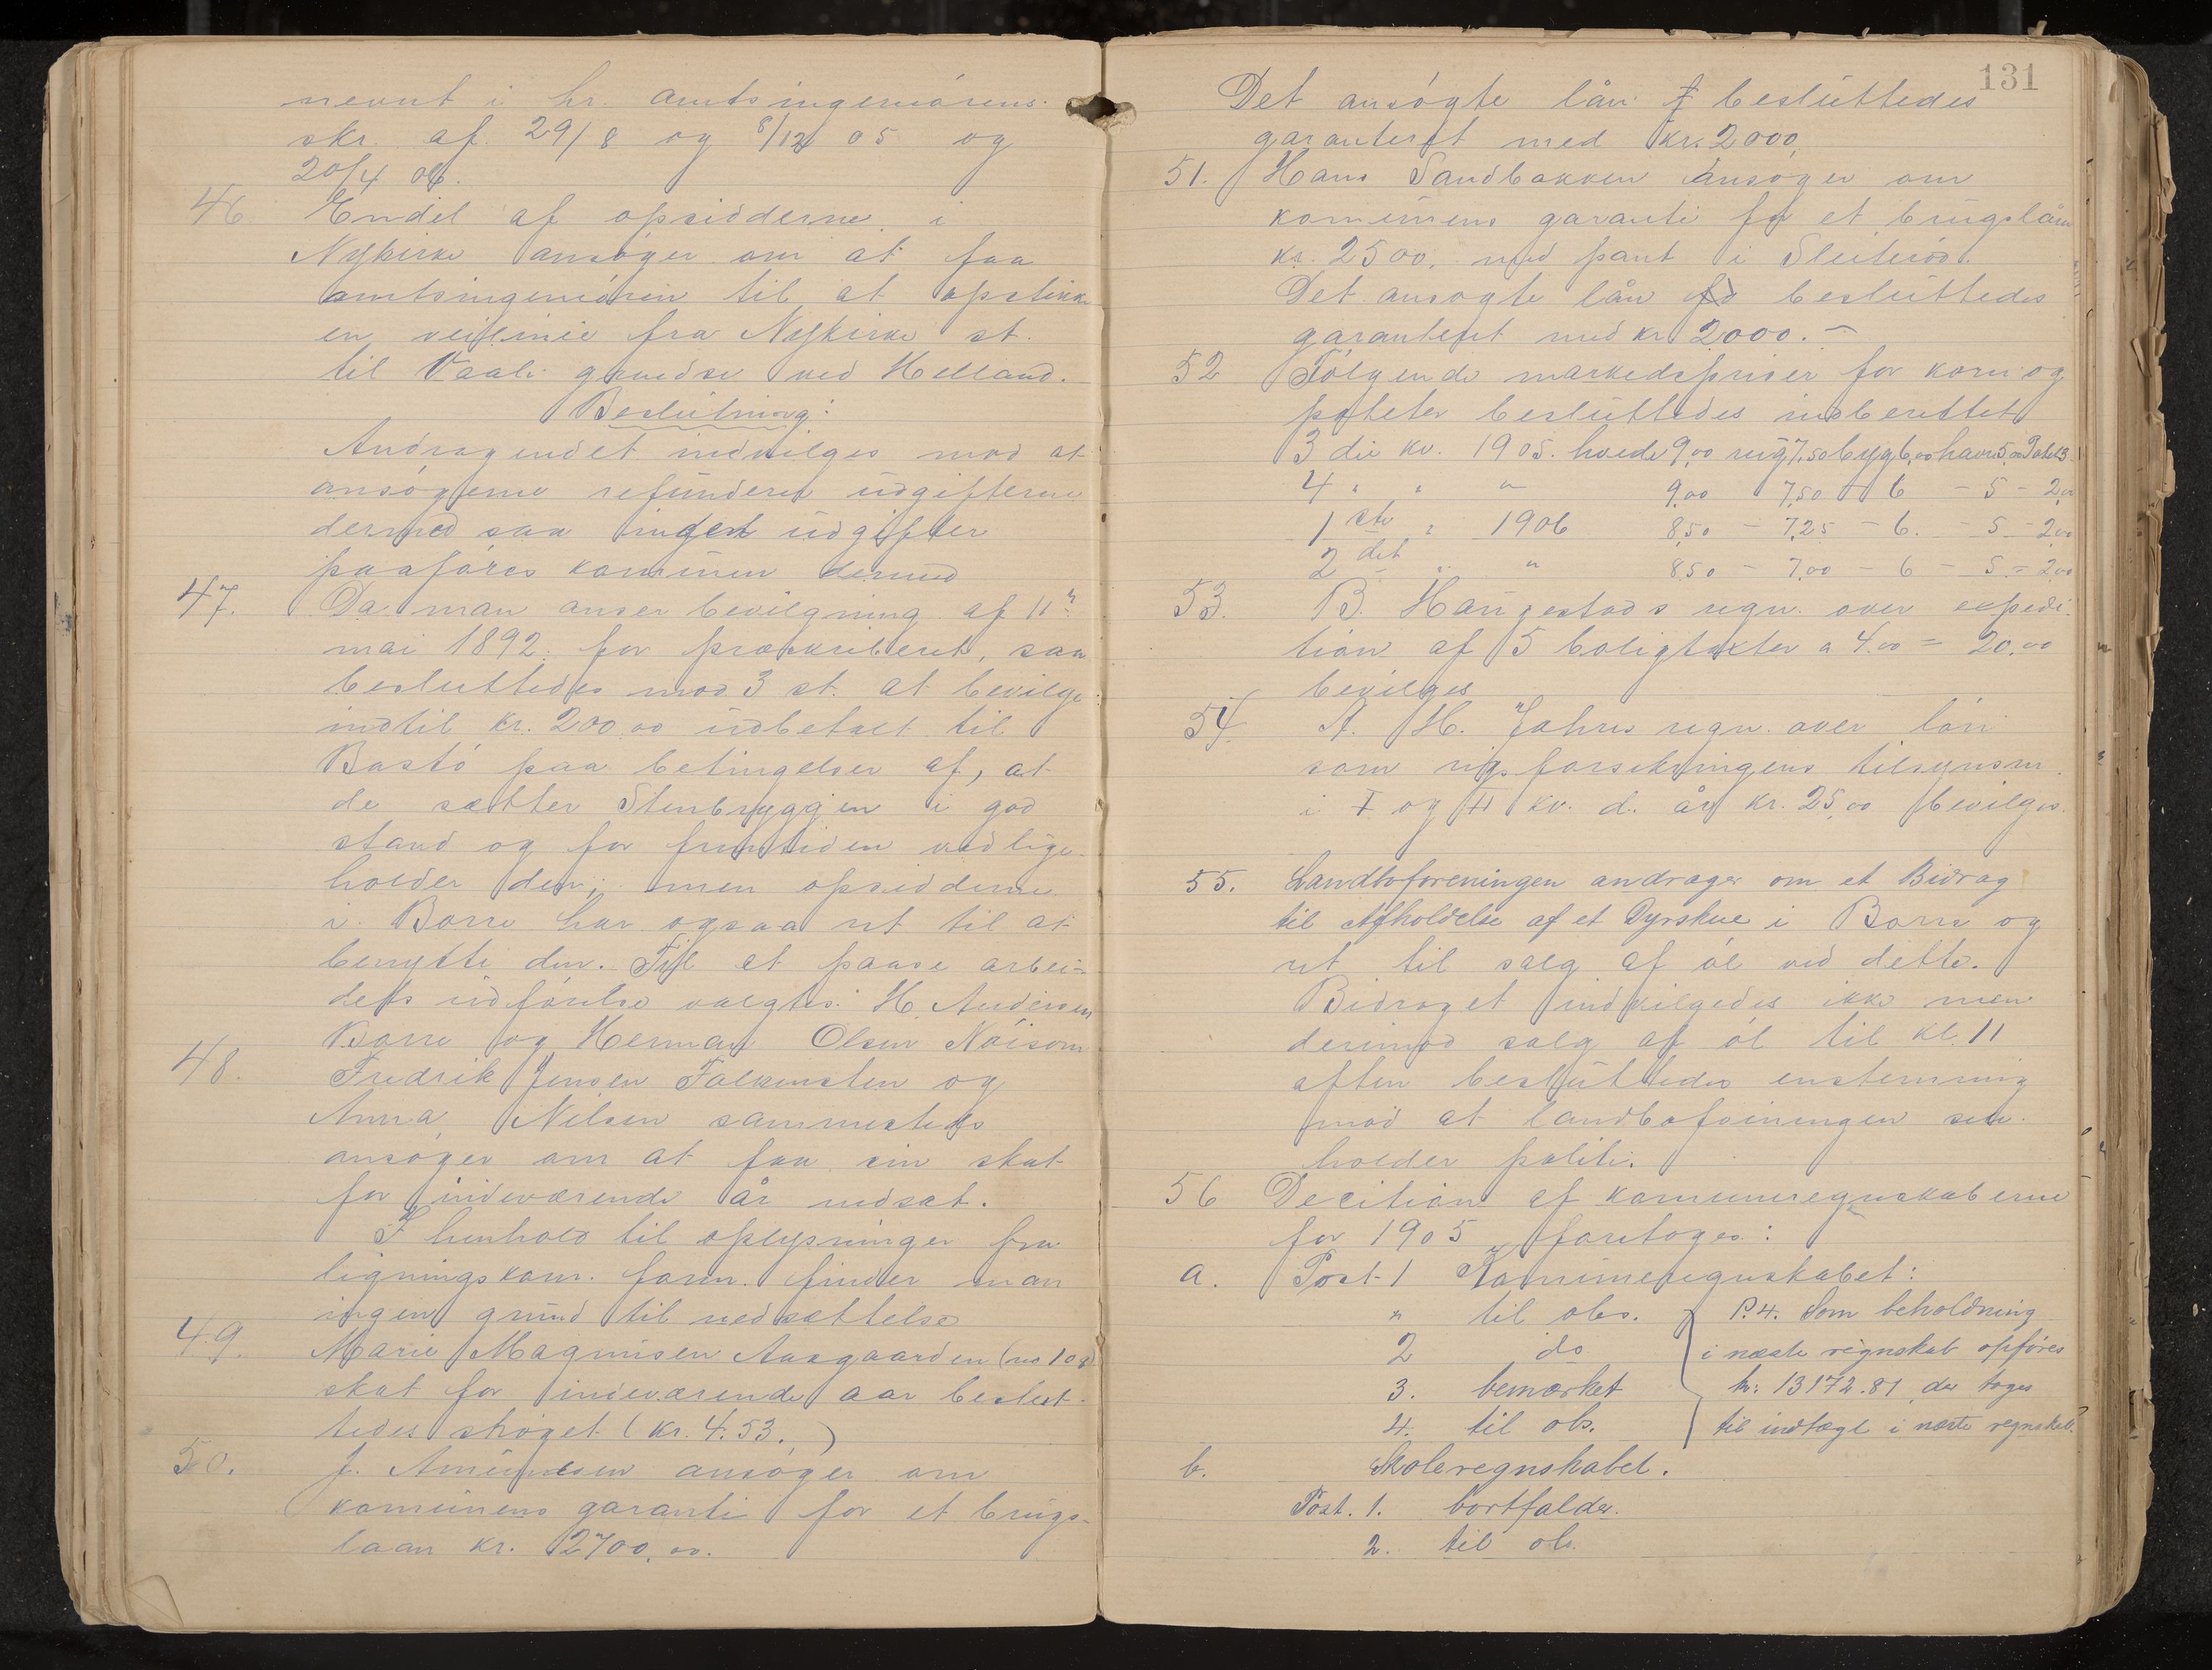 nevnt i hr. amtsingeniørens
skr. af 29/8 og 8/12 05 og
20/4 06.
46 Endel af opsidderne i
Nykirke ansøger om at faa
amtsingeniøren til at opstikke
en veilinie fra Nykirke st.
til Vaale grændse ved Helland.
Beslutning:
Andragendet indvilges mod at
ansøgerne refunderer udgifterne
dermed saa ingen udgifter
paaføres kommunen dermed
47. Da man anser bevilgning af 11te
mai 1892 for præskriberet, saa
besluttedes mod 3 st. at bevilge
indtil kr. 200,00 udbetalt til
Bastø paa betingelser af, at
de sætter Stenbryggen i god
stand og for fremtiden vedlige-
holder den; men opsidderne
i Borre har ogsaa ret til at
benytte den. Til at paase arbei-
dets udførelse valgtes: H. Andersen
Borre og Herman Olsen Nøisom
48. Fredrik Jensen Falkensten og
Anna Nilsen sammesteds
ansøger om at faa sin skat
for indeværende år nedsat.
I henhold til oplysninger fra
ligningskom. form. finder man
ingen grund til nedsættelse
49. Marie Magnusen Aasgaarden (no 108)
skat for indeværende aar beslut-
tedes strøget (kr. 4.53.)
50. J. Amundsen ansøger om
kommunens garanti for et brugs-
laan kr. 2700,00.
131
Det ansøgte lån f besluttedes
garanteret med kr. 2000,
51. Hans Sandbakken ansøger om
kommunens garanti for et brugslån
kr. 2500, med pant i Sleiterød.
Det ansøgte lån fo besluttedes
garanteret med kr 2000. —
52 Følgende markedspriser for korn og
poteter besluttedes indberettet
3 die kv. 1905. hvede 9,00 rug 7,50 byg 6,00 havre 5,00 Potet 3.
4 " " " 9,00 7,50 6 - 5 - 2,00
1 ste " 1906 8,50 - 7,25 - 6. - 5 - 2,00
2 det " " 8,50 - 7,00 - 6 - 5. - 2,00
53. B. Haugestads regn. over expedi-
tion af 5 boligtakster a 4.00 = 20.00
bevilges
54. A. H. Jahres regn. over løn
som rigsforsikringens tilsynsm.
i I og II kv. d. år kr. 25,00 bevilges.
55. Landboforeningen andrager om et Bidrag
til Afholdelse af et Dyrskue i Borre og
ret til salg af øl ved dette.
Bidraget indvilgedes ikke men
derimod salg af øl til kl. 11
aften besluttedes enstemmig
mod at landboforeningen selv
holder politi.
56 Decition af kommuneregnskaberne
for 1905 foretoges:
a. Post 1 Kommuneregnskabet:
" til obs. P. 4. Som beholdning
2 do i næste regnskab opføres
3. bemærket kr. 13172.81 der tages
4. til obs. til indtægt i næste regnskab.
b. Skoleregnskabet.
Post. 1. bortfalder.
2. til obs.